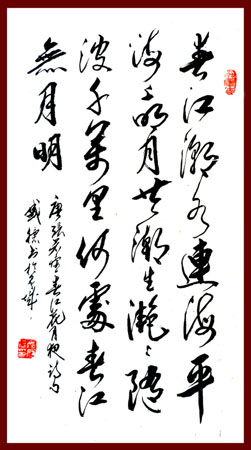 春江潮水連海平
海上明月共潮生灩〻隨
波千萬里何處春江
無月明
唐張若虛春江花月夜詩句
書於